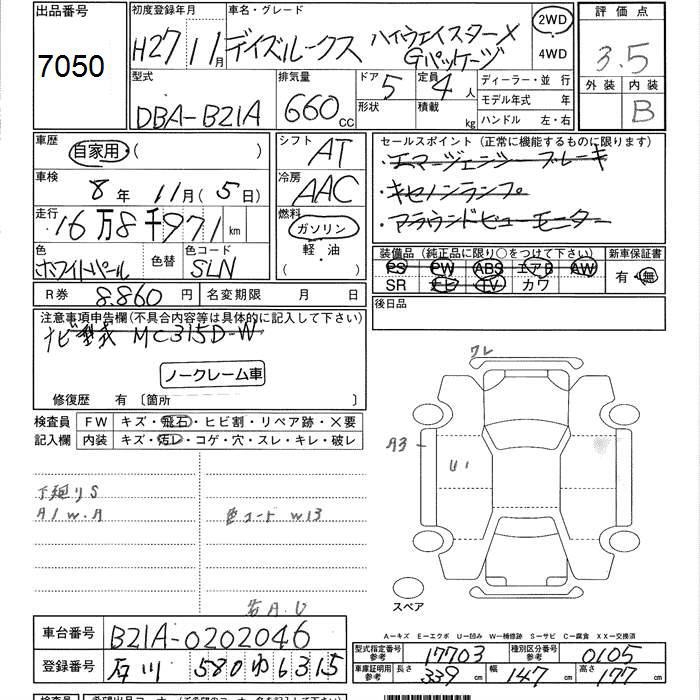 出品番号
7050
初度登録年月
H27 11月
車名・グレード
デイズルークス ハイウェイスターX
Gパッケージ
2WD
4WD
評価点
3.5
外装 内装
B
型式
DBA-B21A
排気量
660 cc
ドア 5
形状
定員 4人
積載 kg
ディーラー・並 行
モデル年式 年
ハンドル 左・右
車歴
自家用・( )
シフト
AT
セールスポイント(正常に機能するものに限ります)
・エマージェンシーブレーキ
・キセノンランプ
・アラウンドビューモニター
車検
8年 11月(5日)
冷房
AAC
走行
16万8千971 km
燃料
ガソリン
軽・油
( )
色
ホワイトパール
色替
色コード
SLN
装備品(純正品に限り○をつけて下さい)
PS PW ABS エアB AW
SR TV カワ
新車保証書
有・無
R券 8.860円
名変期限 月 日
後日品
注意事項申告欄(不具合内容等は具体的に記入して下さい)
ナビ型式 MC315D-W
ノークレーム車
修復歴 有〔箇所 〕
検査員 FW キズ・飛石・ヒビ割・リペア跡・×要
記入欄 内装 キズ・汚レ・コゲ・穴・スレ・キレ・破レ
下廻りS
A/W.A
色コード W13
ワレ
A3
U1
スペア
A-キズ E-エクボ U-凹み W-補修跡 S-サビ C-腐食 XX-交換済
車台番号 B21A-0202046
登録番号 石川 580 ゆ 6315
型式指定番号
参考
17703
種別区分番号
参考
0105
車庫証明用
参考
長さ 339 cm
幅 147 cm
高さ 177 cm